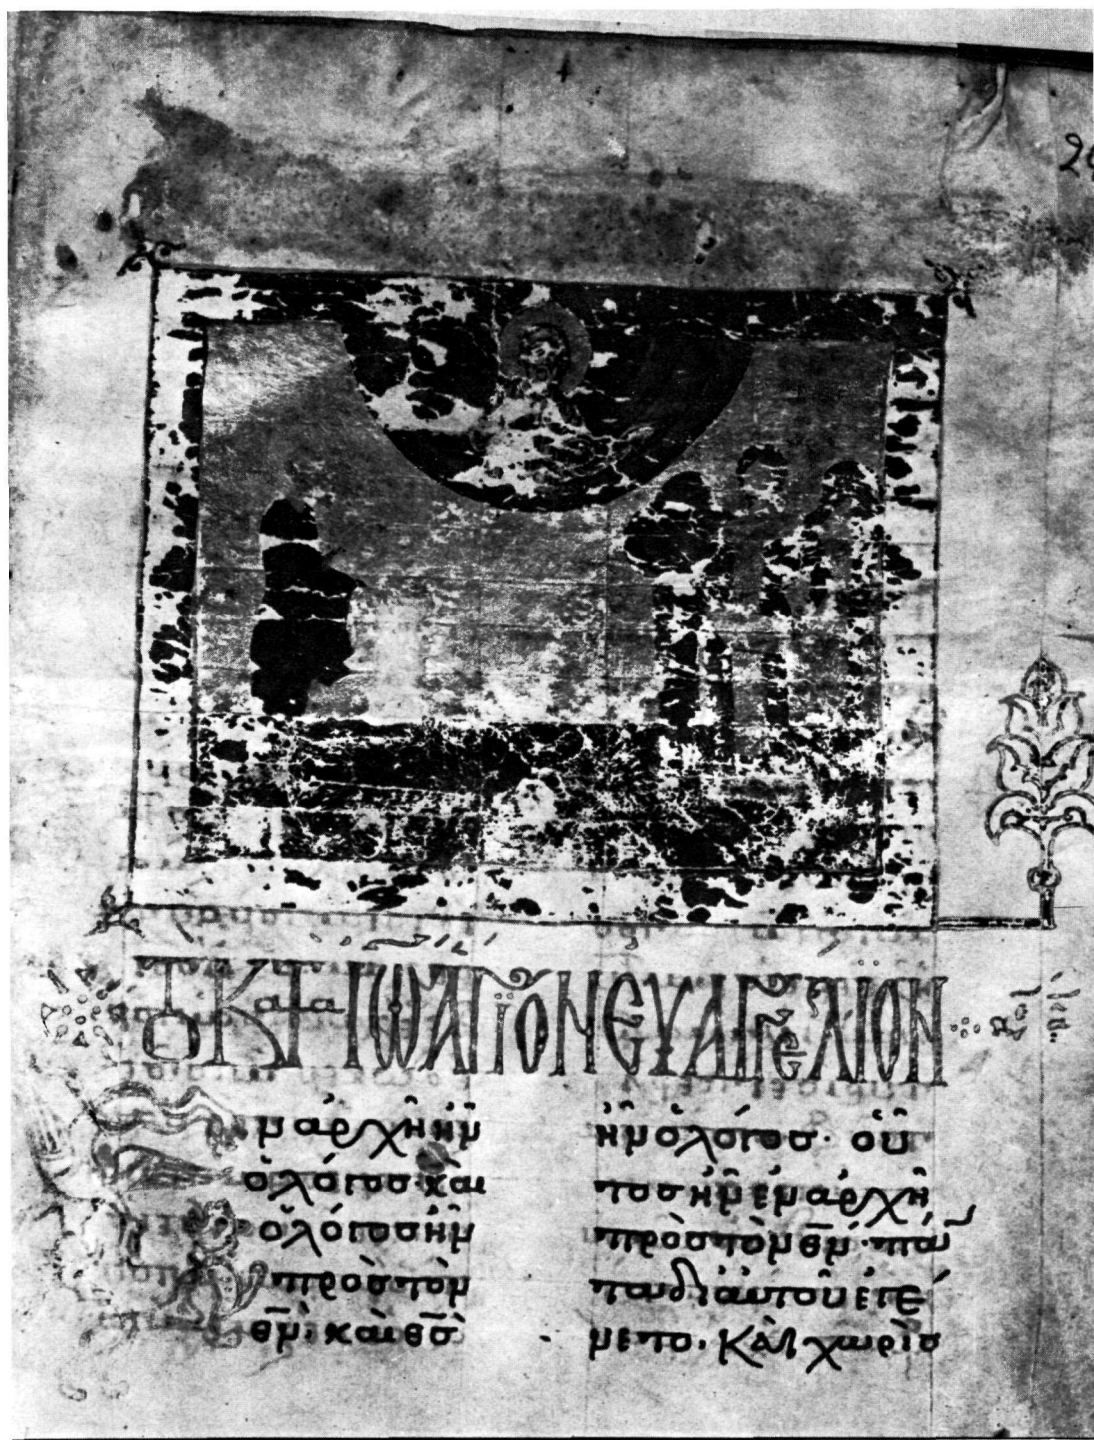 ΤὸΚατὰΙΩΑΓΙΟΝΕΥΑΓΓΕΛΙΟΝ
ν ἀρχῆ ἦν
ὁ λόγος· καὶ
ὁ λόγος ἦν
πρὸς τὸν
θ̅ν̅· καὶ θ̅σ̅
ἦν ὁ λόγος· οὗ
τος ἦν ἐν ἀρχῆ
πρὸς τὸν θ̅ν̅· πάν
τα δι αὐτοῦ ἐγέ
νετο· Καὶ χωρὶς